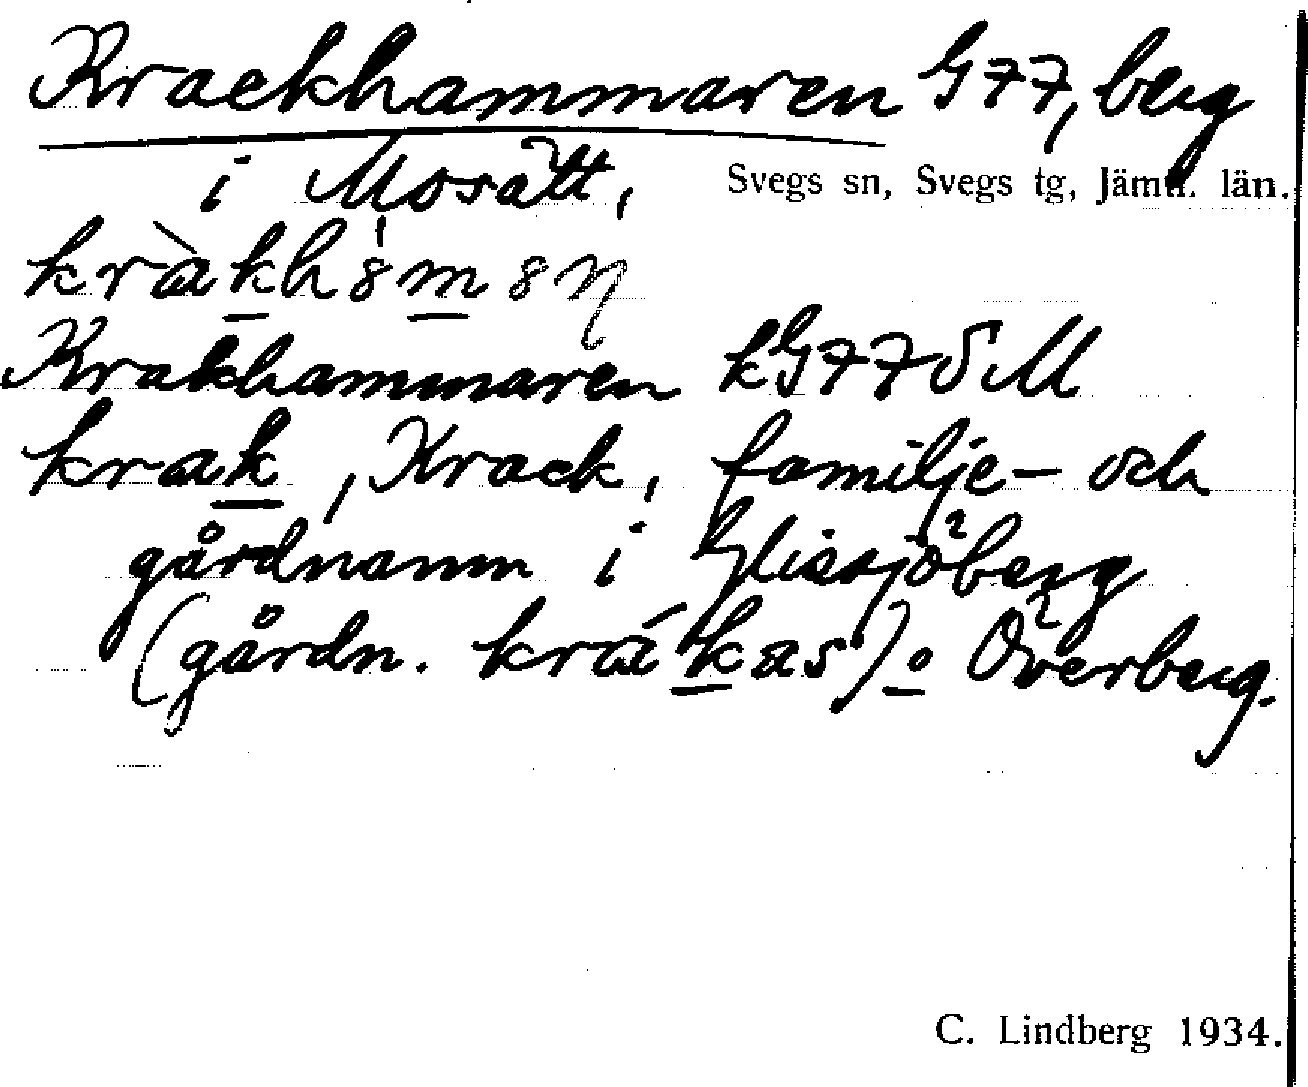 Krackhammaren G77, berg
i Mosätt,
Svegs sn, Svegs tg, Jämtl. län.
Krakhammaren kG77ÖM
krak, Krack, familje- och
gårdnamn i Glissjöberg
(gårdn. krákas) o Överberg.
C. Lindberg 1934.